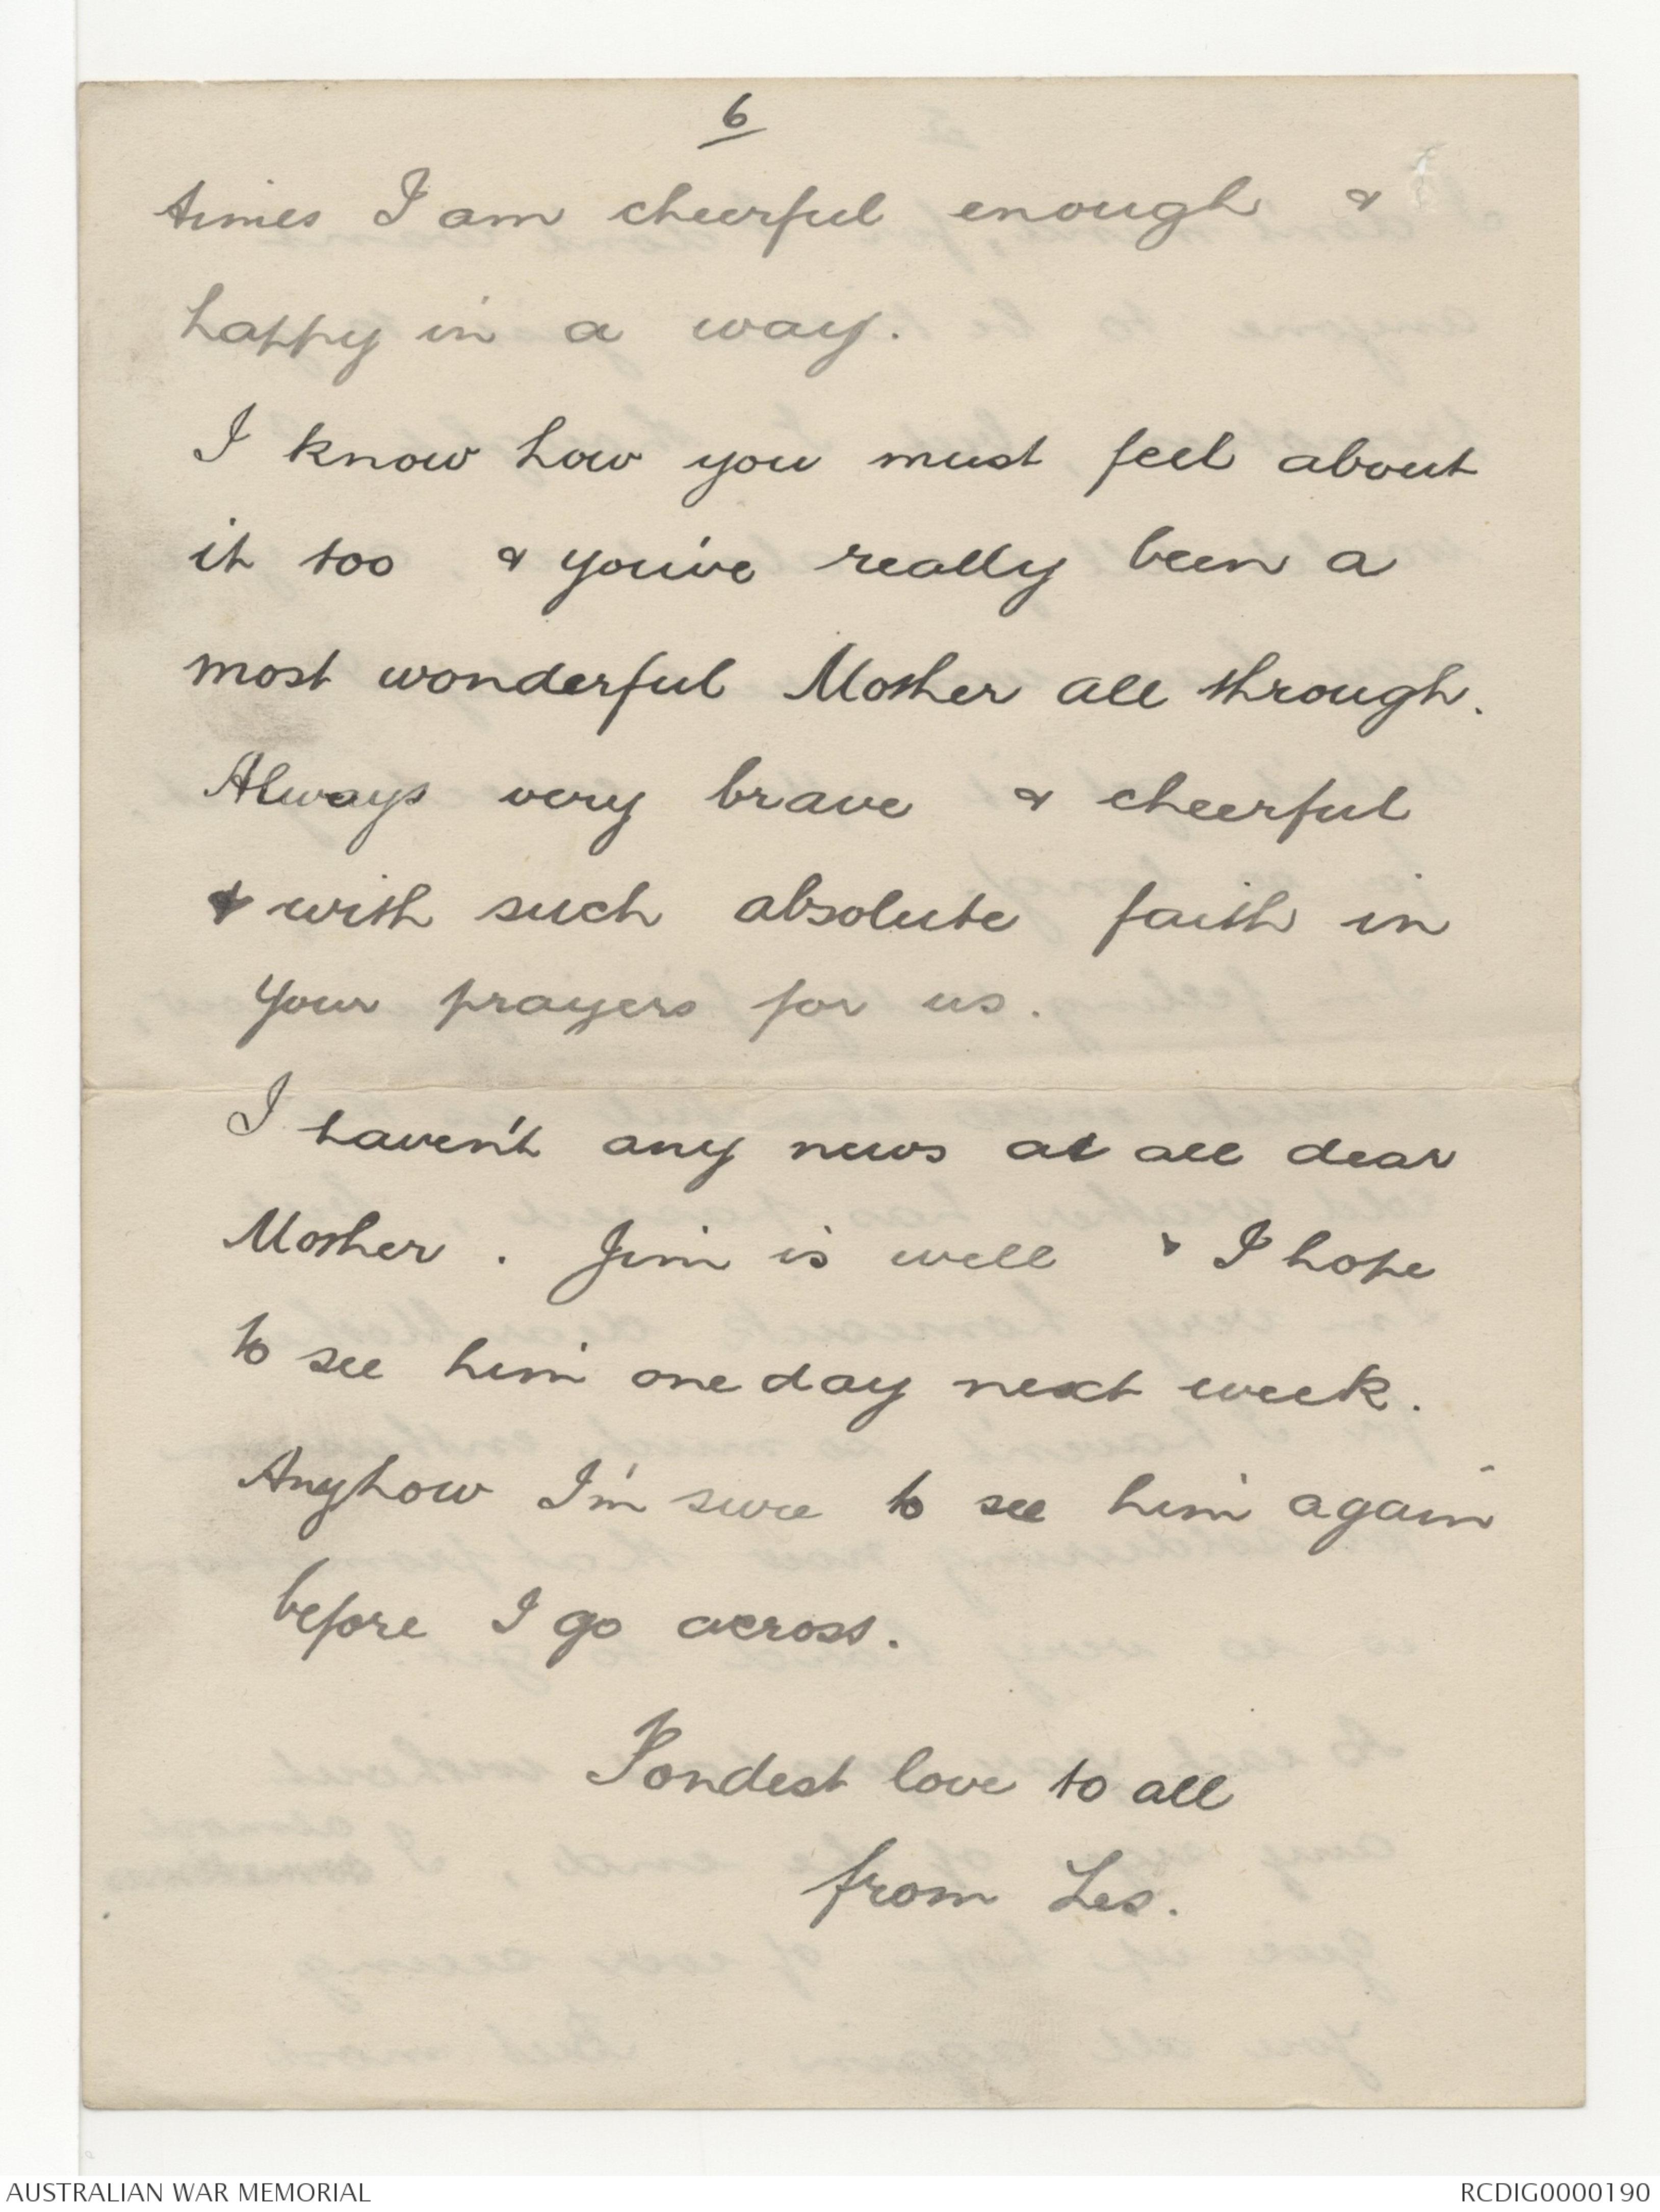 6
times I am cheerful enough &
happy in a way.
I know how you must feel about
it too & you've really been a
most wonderful Mother all through.
Always very brave & cheerful
& with such absolute faith in
your prayers for us.
I haven't any news at all dear
Mother. Jim is well & I hope
to see him one day next week.
Anyhow I'm sure to see him again
before I go across.
Fondest love to all
from Les.
AUSTRALIAN WAR MEMORIAL
RCDIG0000190